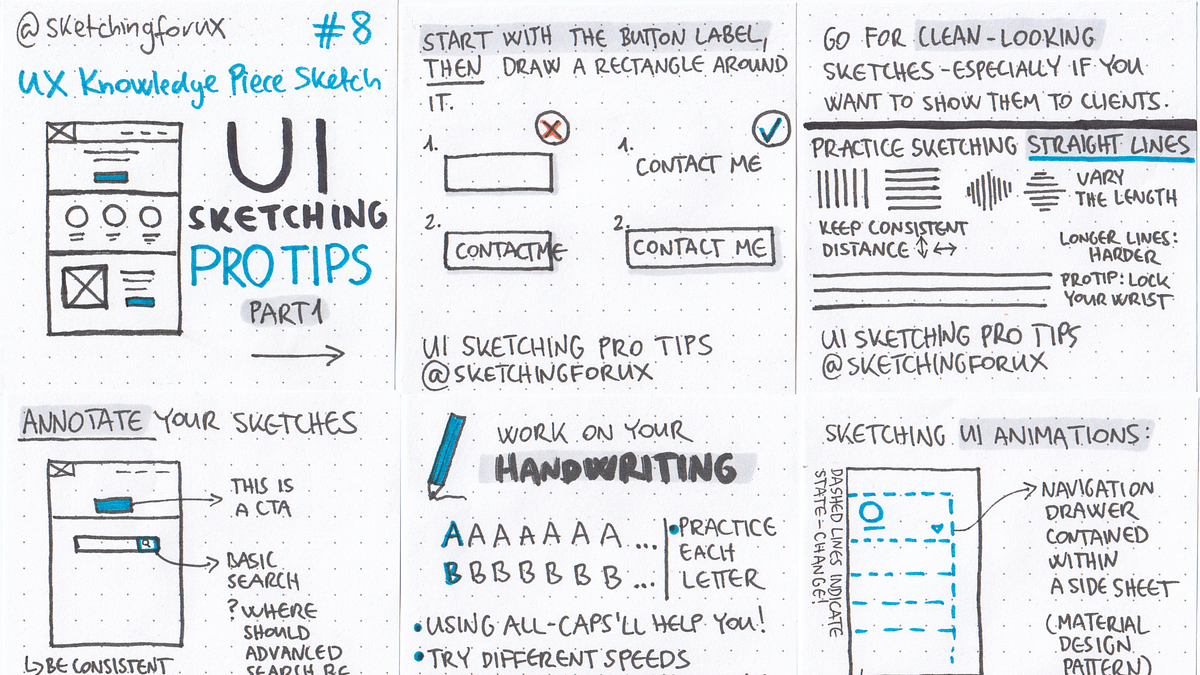 @sketchingforux
#8
UX Knowledge Piece Sketch
UI
SKETCHING
PRO TIPS
PART 1
START WITH THE BUTTON LABEL,
THEN DRAW A RECTANGLE AROUND
IT.
1.
2.
CONTACT ME
1.
CONTACT ME
2.
CONTACT ME
UI SKETCHING PRO TIPS
@SKETCHINGFORUX
GO FOR CLEAN-LOOKING
SKETCHES - ESPECIALLY IF YOU
WANT TO SHOW THEM TO CLIENTS.
PRACTICE SKETCHING STRAIGHT LINES
VARY
THE LENGTH
KEEP CONSISTENT
DISTANCE
LONGER LINES:
HARDER
PROTIP: LOCK
YOUR WRIST
UI SKETCHING PRO TIPS
@SKETCHINGFORUX
ANNOTATE YOUR SKETCHES
THIS IS
A CTA
BASIC
SEARCH
? WHERE
SHOULD
ADVANCED
SEARCH BE
BE CONSISTENT
WORK ON YOUR
HANDWRITING
A A A A A A A ...
B B B B B B B ...
• PRACTICE
EACH
LETTER
• USING ALL-CAPS'LL HELP YOU!
• TRY DIFFERENT SPEEDS
SKETCHING UI ANIMATIONS:
DASHED LINES INDICATE
STATE-CHANGE!
NAVIGATION
DRAWER
CONTAINED
WITHIN
A SIDE SHEET
(MATERIAL
DESIGN
PATTERN)